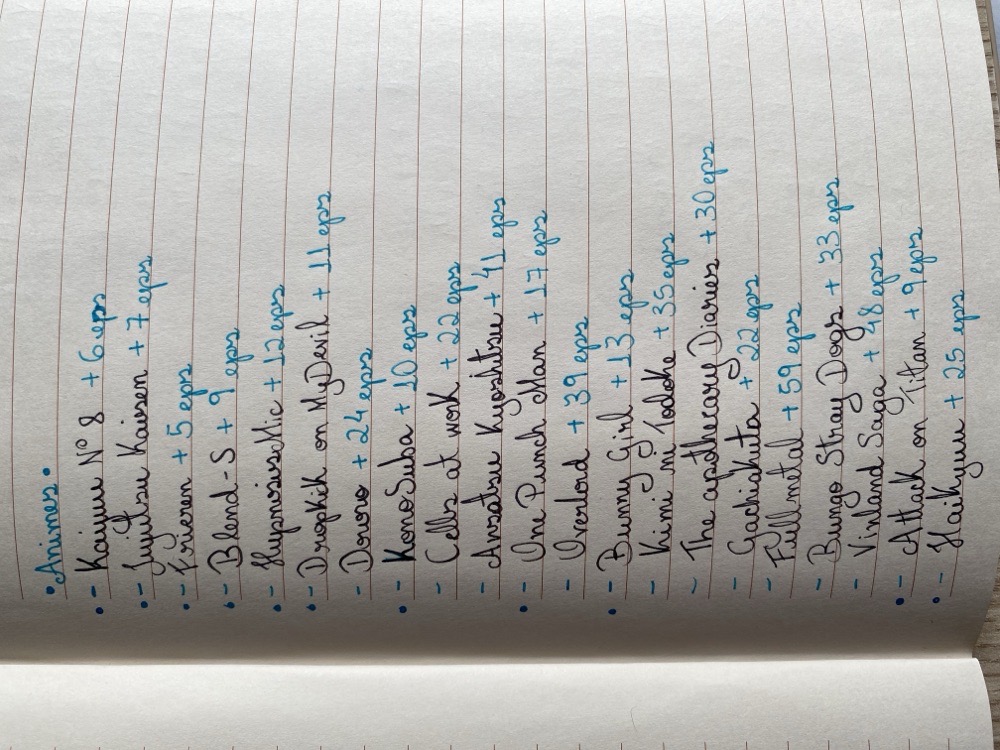 • Animes •
• - Kaijuu Nº 8 + 6 eps
• - Jujutsu Kaisen + 7 eps
• - Frieren + 5 eps
• - Blend-S + 9 eps
• - HypnosisMic + 12 eps
• - Dropkik on MyDevil + 11 eps
- Dororo + 24 eps
• - KonoSuba + 10 eps
- Cells at work + 22 eps
- Ansatsu Kyoshitsu + 41 eps
• - One Punch Man + 17 eps
- Overlord + 39 eps
• - Bunny Girl + 13 eps
- Kimi ni Todoke + 35 eps
- The apothecary Diaries + 30 eps
- Gachiakuta + 22 eps
- Fullmetal + 59 eps
- Bungo Stray Dogs + 33 eps
- Vinland Saga + 48 eps
• - Attack on Titan + 9 eps
• - Haikyuu + 25 eps